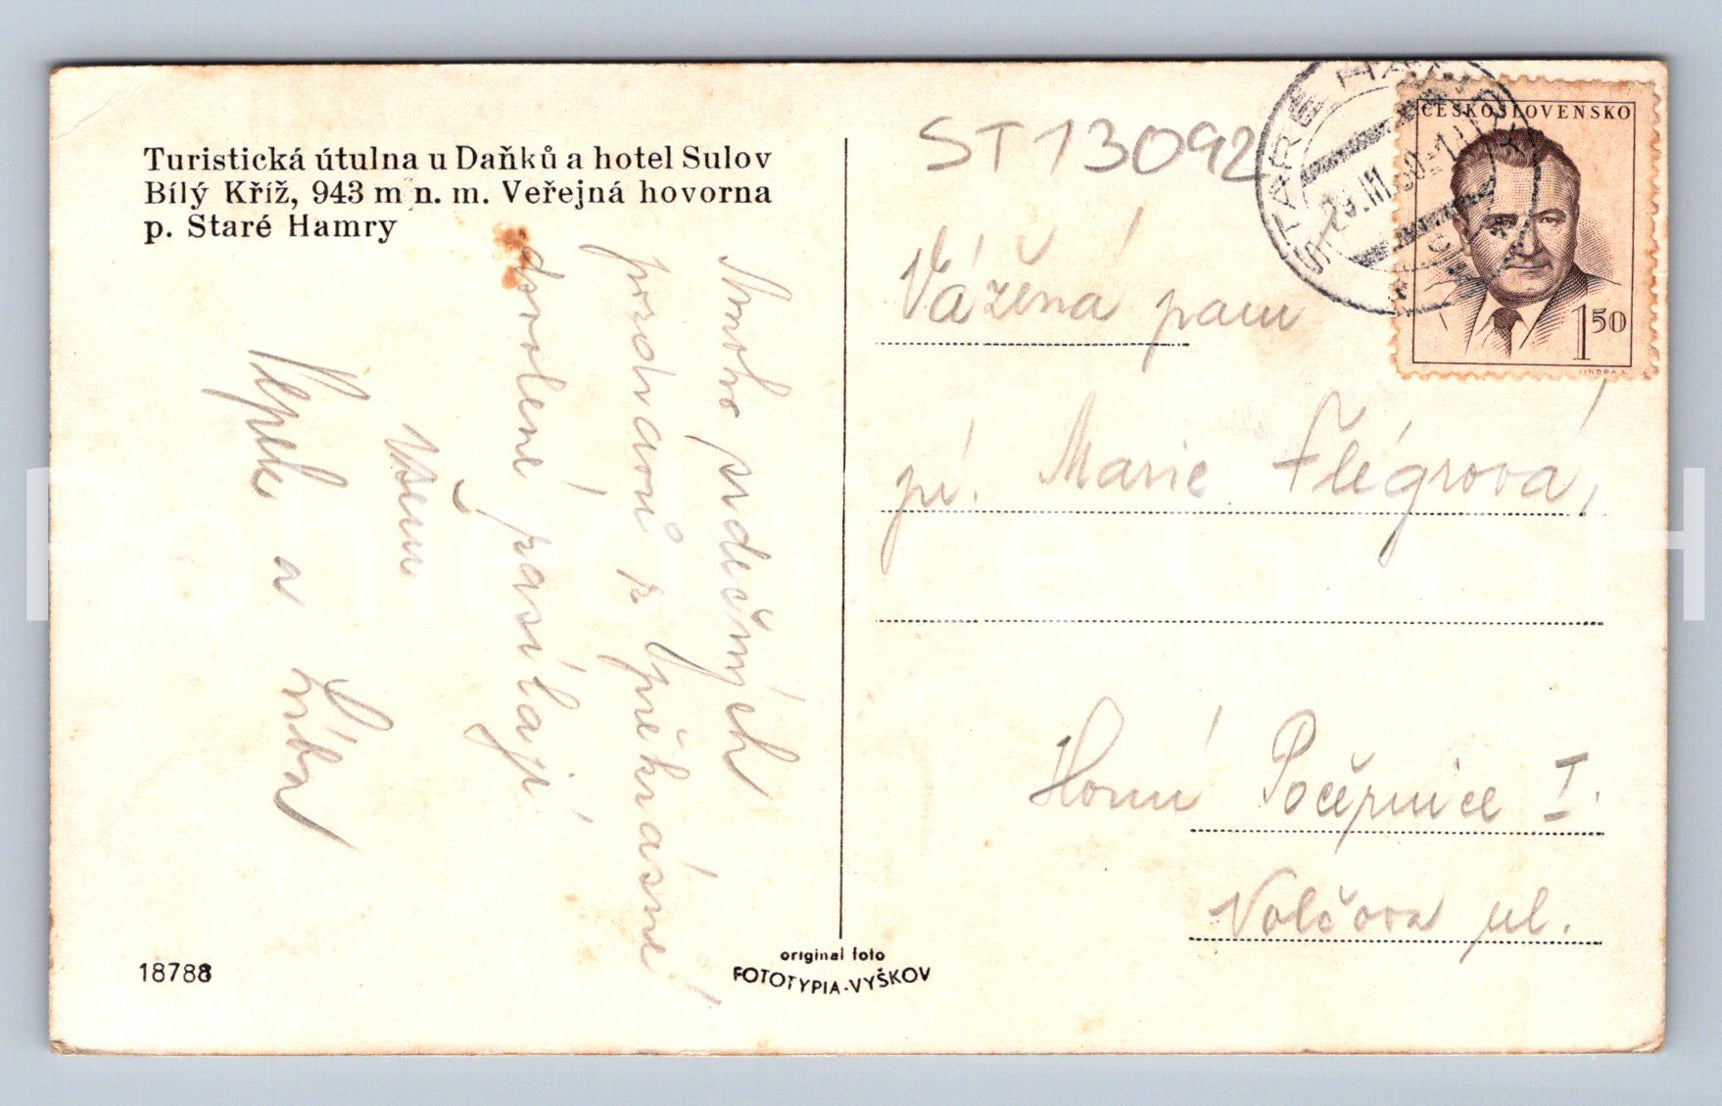 Turistická útulna u Daňků a hotel Sulov
Bílý Kříž, 943 m n. m. Veřejná hovorna
p. Staré Hamry
Mnoho srdečných
pozdravů z překrásné
dovolené zasílají
všem
a
18788
original foto
FOTOTYPIA-VYŠKOV
ST13092
STARÉ HAMRY
29.III.50
ČESKOSLOVENSKO
1 50
JINDRA S.
Vážená paní
pí. Marie Flégrová,
Horní Počernice I.
Volčova ul.
Pohlednice GASH